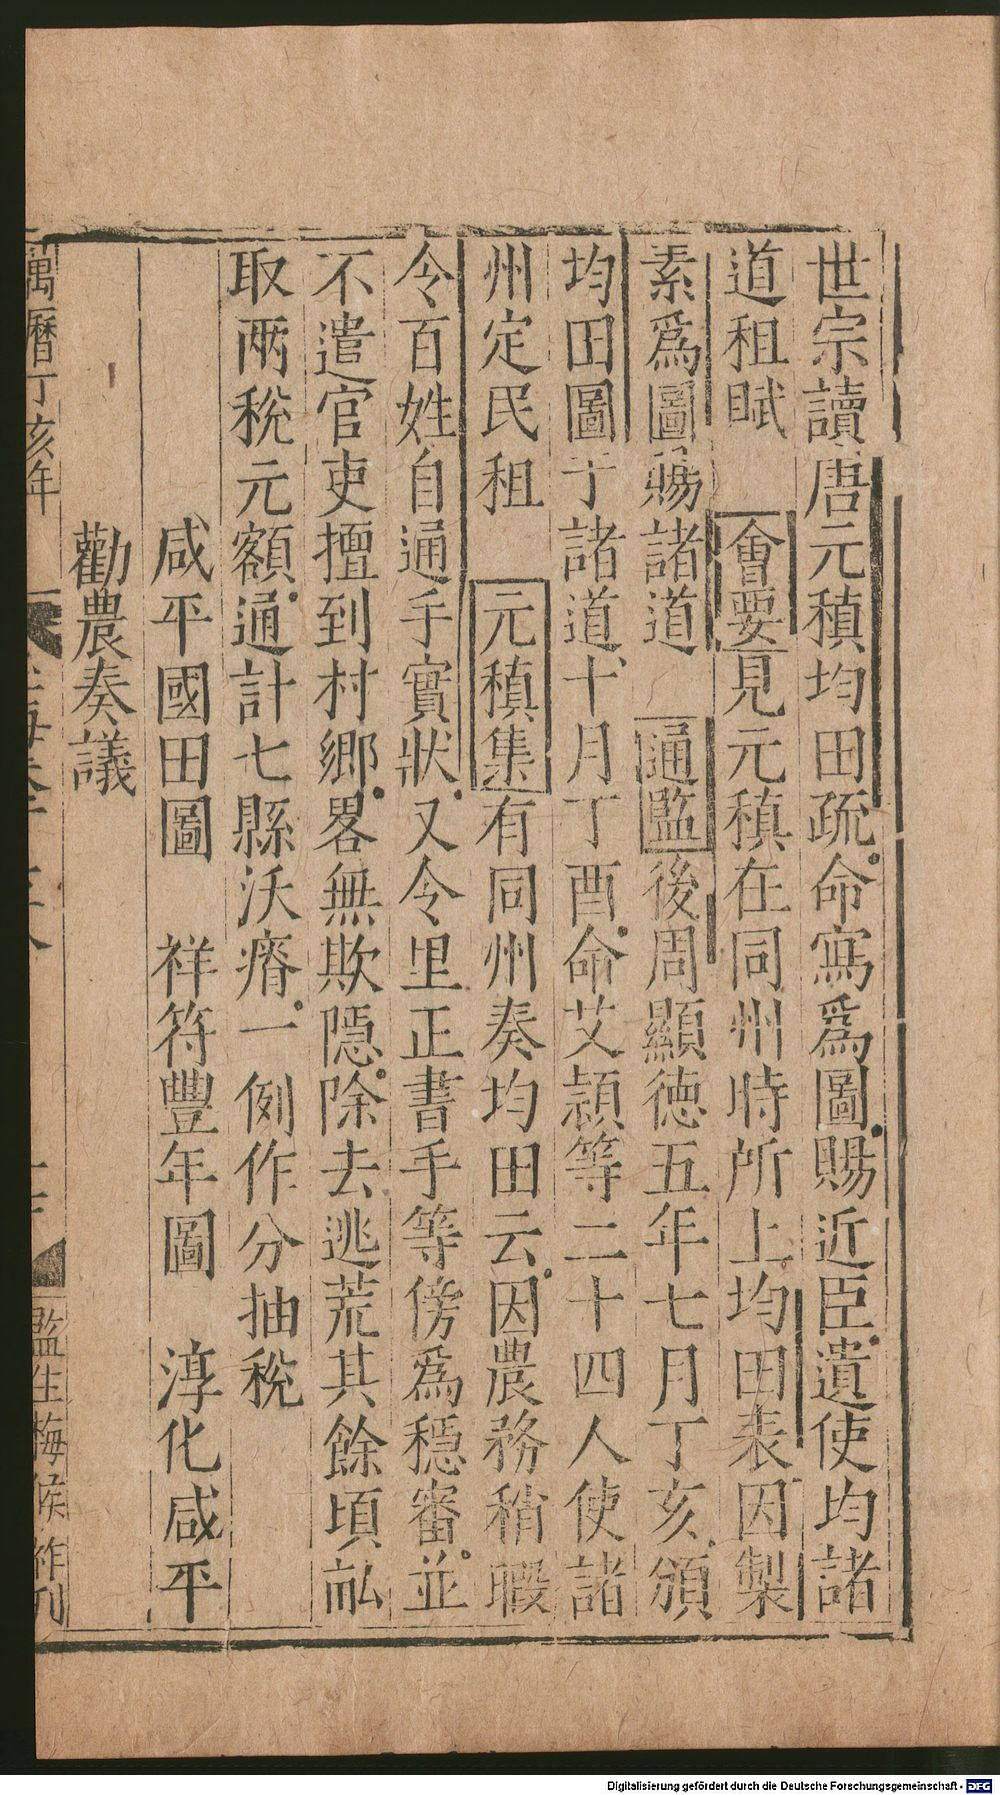 世宗讀唐元稹均田疏命寫爲圖賜近臣遺使均諸
道租賦　會要見元稹在同州時所上均田表因製
素爲圖賜諸道　通監後周顯德五年七月丁亥頒
均田圖于諸道十月丁酉命艾頴等二十四人使諸
州定民租　元稹集有同州奏均田云因農務稍暇
令百姓自通手實狀又令里正書手等傍爲穩審並
不遣官吏擅到村鄉畧無欺隱除去逃荒其餘頃畝
取兩稅元額通計七縣沃瘠一例作分抽稅
咸平國田圖　祥符豐年圖　淳化咸平
勸農奏議
萬曆丁亥年
監生梅侯祚刊
Digitalisierung gefördert durch die Deutsche Forschungsgemeinschaft - DFG